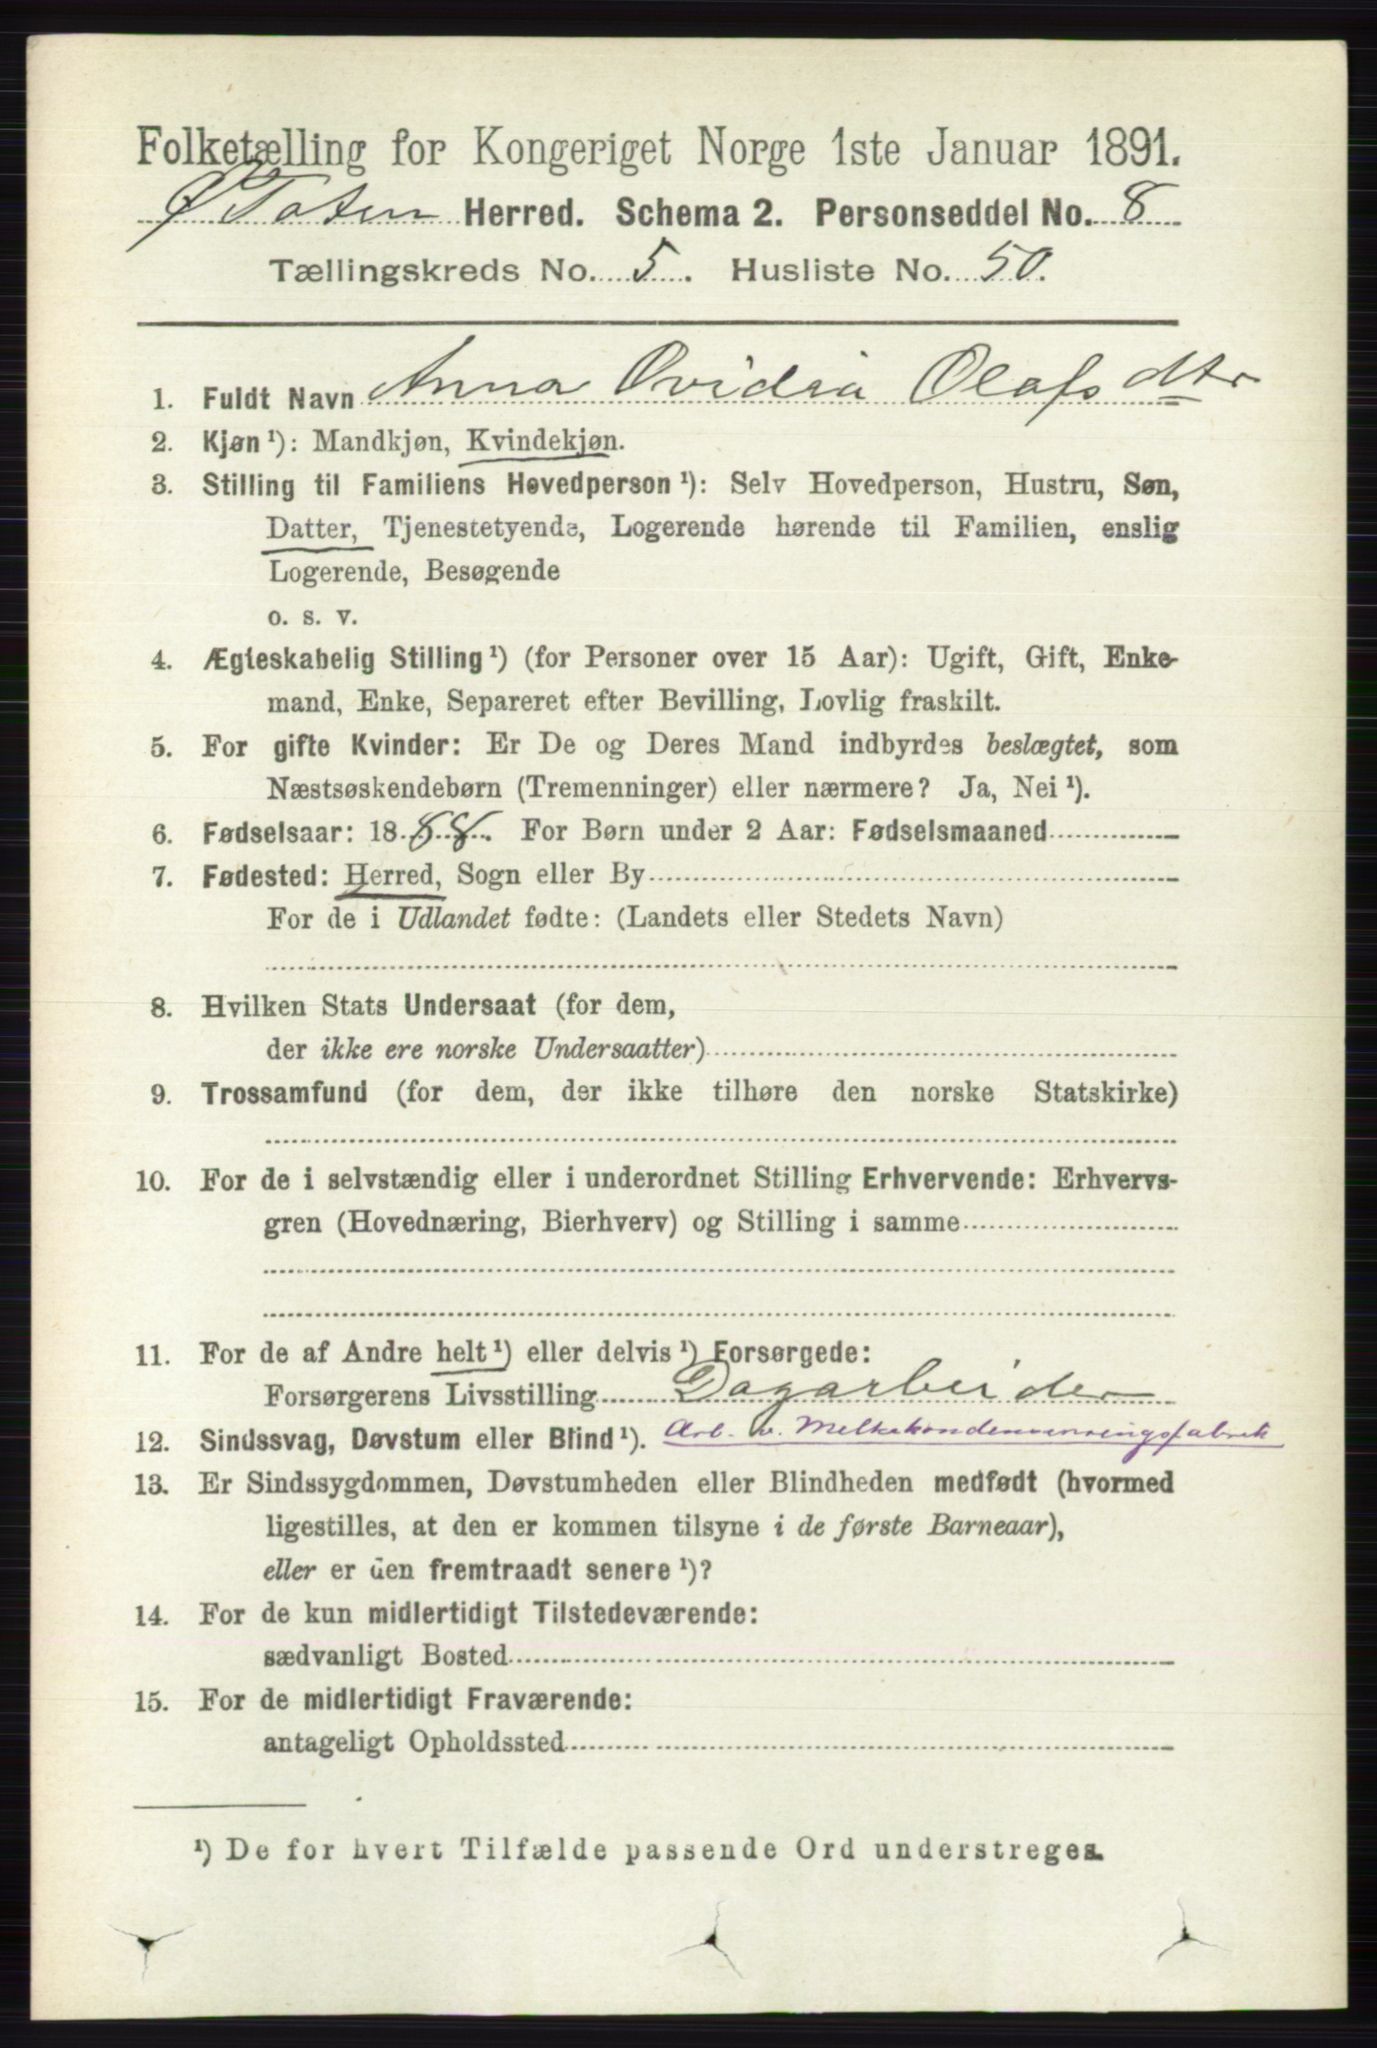 Folketælling for Kongeriget Norge 1ste Januar 1891.
Ø Toten Herred. Schema 2. Personseddel No. 8
Tællingskreds No. 5. Husliste No. 50.
1. Fuldt Navn Anna Ovidia Olafsdtr
2. Kjøn ¹): Mandkjøn, Kvindekjøn.
3. Stilling til Familiens Hovedperson ¹): Selv Hovedperson, Hustru, Søn,
Datter, Tjenestetyende, Logerende hørende til Familien, enslig
Logerende, Besøgende
o. s. v.
4. Ægteskabelig Stilling ¹) (for Personer over 15 Aar): Ugift, Gift, Enke-
mand, Enke, Separeret efter Bevilling, Lovlig fraskilt.
5. For gifte Kvinder: Er De og Deres Mand indbyrdes beslægtet, som
Næstsøskendebørn (Tremenninger) eller nærmere? Ja, Nei ¹).
6. Fødselsaar: 1888. For Børn under 2 Aar: Fødselsmaaned
7. Fødested: Herred, Sogn eller By
For de i Udlandet fødte: (Landets eller Stedets Navn)
8. Hvilken Stats Undersaat (for dem,
der ikke ere norske Undersaatter)
9. Trossamfund (for dem, der ikke tilhøre den norske Statskirke)
10. For de i selvstændig eller i underordnet Stilling Erhvervende: Erhvervs-
gren (Hovednæring, Bierhverv) og Stilling i samme
11. For de af Andre helt ¹) eller delvis ¹) Forsørgede:
Forsørgerens Livsstilling Dagarbeider
12. Sindssvag, Døvstum eller Blind ¹). Arb. v. Melkekondenseringsfabrik
13. Er Sindssygdommen, Døvstumheden eller Blindheden medfødt (hvormed
ligestilles, at den er kommen tilsyne i de første Barneaar),
eller er den fremtraadt senere ¹)?
14. For de kun midlertidigt Tilstedeværende:
sædvanligt Bosted
15. For de midlertidigt Fraværende:
antageligt Opholdssted
¹) De for hvert Tilfælde passende Ord understreges.